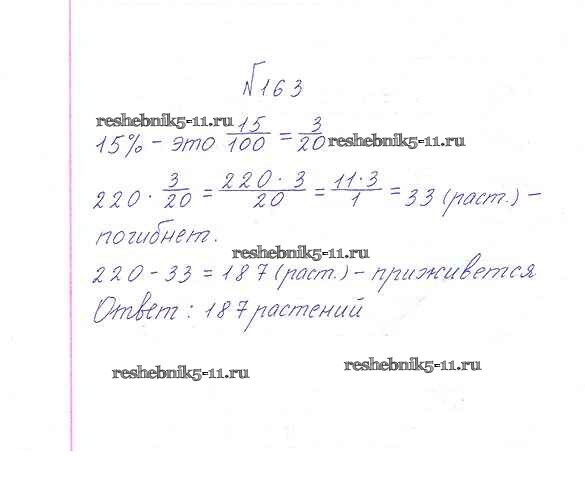 №163
reshebnik5-11.ru
15% - это 15/100 = 3/20
reshebnik5-11.ru
220 · 3/20 = 220 · 3/20 = 11·3/1 = 33 (раст.) -
погибнет.
reshebnik5-11.ru
220 - 33 = 187 (раст.) - приживется
Ответ: 187 растений
reshebnik5-11.ru
reshebnik5-11.ru